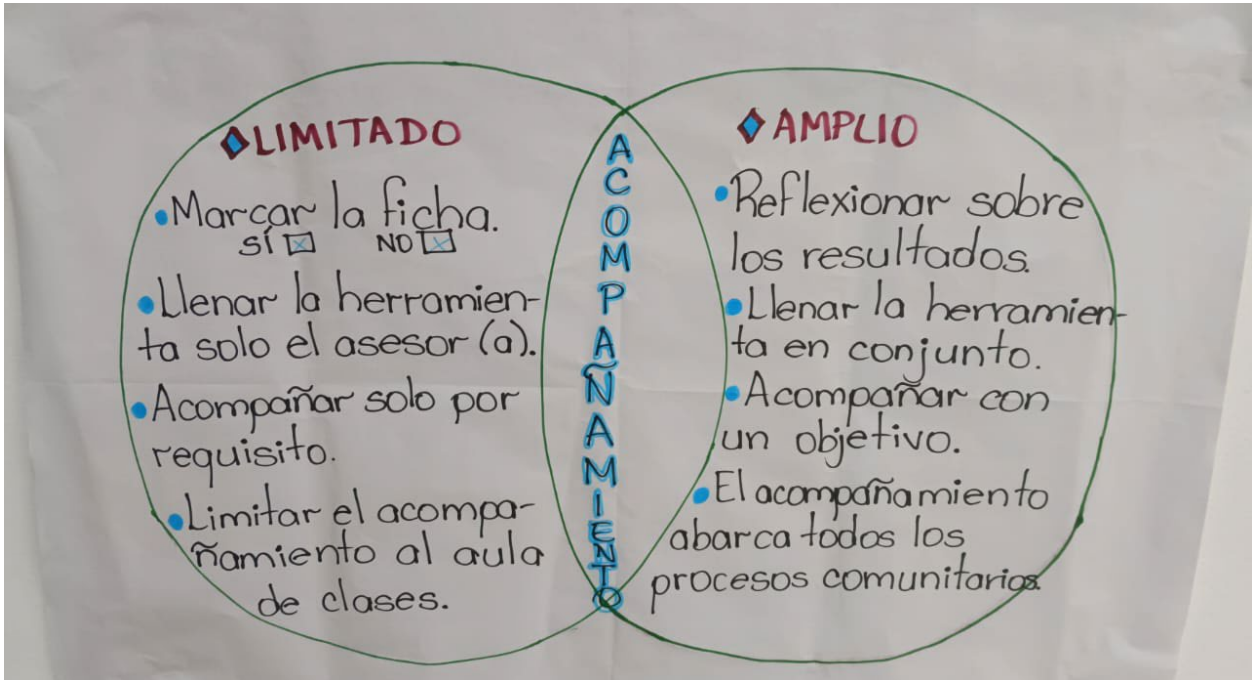 ◆LIMITADO
•Marcar la ficha.
SÍ ☒ NO ☒
•Llenar la herramien-
ta solo el asesor (a).
•Acompañar solo por
requisito.
•Limitar el acompa-
ñamiento al aula
de clases.
ACOMPAÑAMIENTO
◆AMPLIO
•Reflexionar sobre
los resultados.
•Llenar la herramien-
ta en conjunto.
•Acompañar con
un objetivo.
•El acompañamiento
abarca todos los
procesos comunitarios.